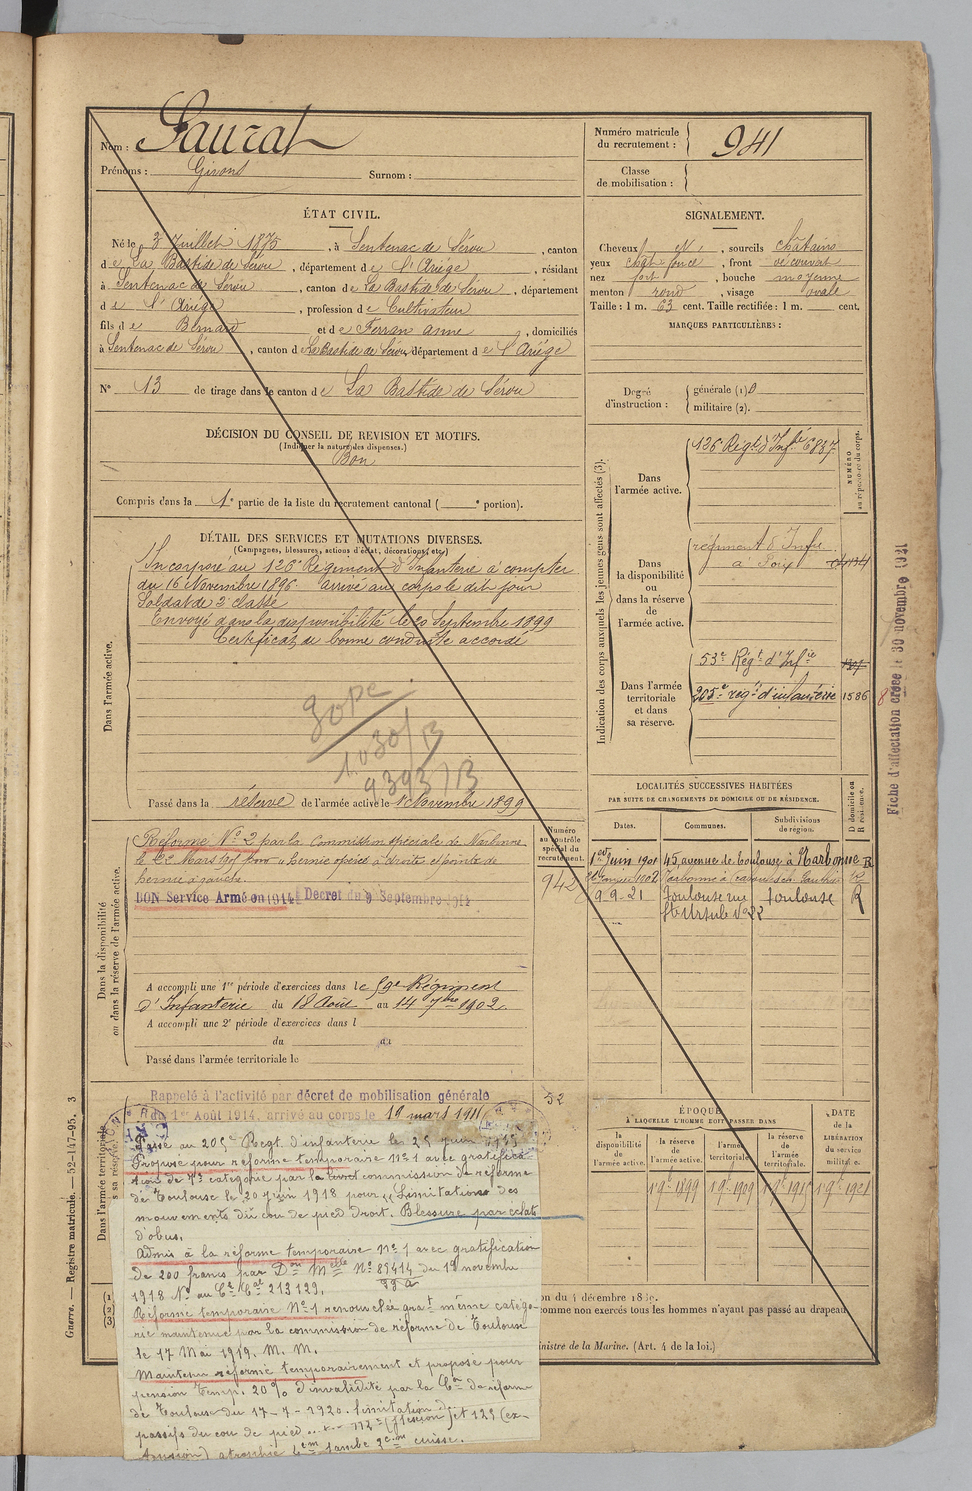 Nom : Saurat
Prénoms : Girons Surnom :
Numéro matricule du recrutement : 941
Classe de mobilisation :
ÉTAT CIVIL.
Né le 3 Juillet 1875, à Sentenac de Sérou, canton
de La Bastide de Sérou, département de l'Ariège, résidant
à Sentenac de Sérou, canton de La Bastide de Sérou, département
de l'Ariège, profession de Cultivateur
fils de Bernard et de Ferran Anne, domiciliés
à Sentenac de Sérou, canton de La Bastide de Sérou, département de l'Ariège
N° 13 de tirage dans le canton de La Bastide de Sérou
SIGNALEMENT.
Cheveux N., sourcils châtains
yeux chat. foncé, front découvert
nez fort, bouche moyenne
menton rond, visage ovale
Taille : 1 m. 63 cent. Taille rectifiée : 1 m. cent.
MARQUES PARTICULIÈRES :
Degré d'instruction : générale (1) 0
militaire (2).
DÉCISION DU CONSEIL DE REVISION ET MOTIFS.
(Indiquer la nature des dispenses.)
Bon
Compris dans la 1e partie de la liste du recrutement cantonal ( e portion).
DÉTAIL DES SERVICES ET MUTATIONS DIVERSES.
(Campagnes, blessures, actions d'éclat, décorations, etc.)
Dans l'armée active.
Incorporé au 126e Régiment d'Infanterie à compter
du 16 Novembre 1896. arrivé au corps le dit jour
Soldat de 2e classe
Envoyé dans la disponibilité le 20 Septembre 1899
Certificat de bonne conduite accordé
1030/B
9393/B
Passé dans la réserve de l'armée active le 1 Novembre 1899
Indication des corps auxquels les jeunes gens sont affectés (3).
NUMÉRO au répertoire du corps.
Dans l'armée active.
126 Régt d'Infie 6837
Dans la disponibilité ou dans la réserve de l'armée active.
régiment d'Infie
à Foix
Dans l'armée territoriale et dans sa réserve.
53e Régt d'Infie
205e regt d'infanterie 1586
Fiche d'affectation créée le 30 novembre 1921
LOCALITÉS SUCCESSIVES HABITÉES
PAR SUITE DE CHANGEMENTS DE DOMICILE OU DE RÉSIDENCE.
Dates. Communes. Subdivisions de région. D domicile ou R résidence.
1er Juin 1901 45 avenue de Toulouse à Narbonne R
9-9-21 Toulouse rue Toulouse R
Ste Ursule No 22
Dans la disponibilité ou dans la réserve de l'armée active.
Numéro au contrôle spécial du recrutement.
942
Réformé No 2 par la Commission spéciale de Narbonne
hernie à gauche.
BON Service Armé en 1914 Décret du 9 Septembre 1914
A accompli une 1re période d'exercices dans le 59e Régiment
d'Infanterie du 18 Août au 14 7bre 1902.
A accompli une 2e période d'exercices dans l
du au
Passé dans l'armée territoriale le
Dans l'armée territoriale
Rappelé à l'activité par décret de mobilisation générale
du 1er Août 1914, arrivé au corps le 19 mars 191
52
Passé au 205e Regt. d'infanterie le 25 juin 1915
Proposé pour réforme temporaire No 1 avec gratifica-
tion de 7e catégorie par la commission de réforme
de Toulouse le 20 juin 1918 pour "Limitation des
mouvements du cou de pied droit. Blessure par éclats
d'obus.
Admis à la réforme temporaire No 1 avec gratification
de 200 francs par Don Melle No 89414 du 19 novembre
1918 No au Ct Cal 213129.
Réforme temporaire No 1 renouvelée grat même catégo-
rie maintenue par la commission de réforme de Toulouse
le 17 Mai 1919. M. M.
Maintenu réformé temporairement et proposé pour
pension temp. 20% d'invalidité par la Con de réforme
de Toulouse du 17-7-1920. limitation
passifs du cou de pied (flexion) et 125 (ex-
tension) atrophie jambe 2cm cuisse.
ÉPOQUE
À LAQUELLE L'HOMME DOIT PASSER DANS
la disponibilité de l'armée active. la réserve de l'armée active. l'armée territoriale. la réserve de l'armée territoriale. DATE de la LIBÉRATION du service militaire.
1 9e 1899 1 9e 1909 1 9e 1915 1 9e 1921
on du 4 décembre 18
omme non exercés tous les hommes n'ayant pas passé au drapeau
inistre de la Marine. (Art. 4 de la loi.)
Guerre. — Registre matricule. — 52-147-95. 3